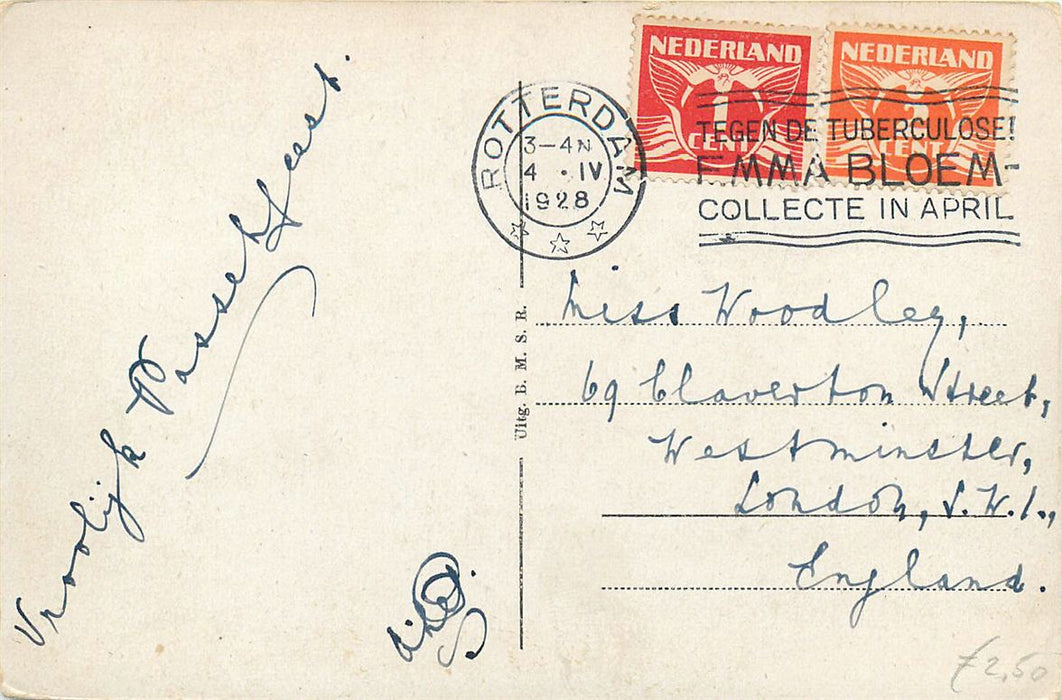 NEDERLAND
1
CENT
NEDERLAND
CENT
ROTTERDAM
3-4N
4 . IV
1928
TEGEN DE TUBERCULOSE!
EMMA BLOEM-
COLLECTE IN APRIL
Vroolijk Paaschfeest.
Uitg. B. M. S. R.
Miss Woodley,
69 Claverton Street,
Westminster,
London, S.W.1.,
England.
ƒ2,50